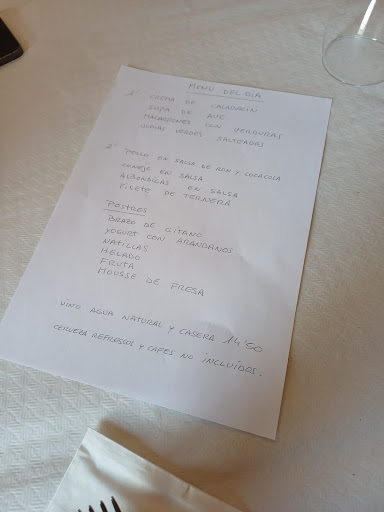 MENÚ DEL DÍA
1º CREMA DE CALABACIN
SOPA DE AVE
MACARRONES CON VERDURAS
JUDIAS VERDES SALTEADAS
2º POLLO EN SALSA DE RON Y COCACOLA
CONEJO EN SALSA
ALBONDIGAS EN SALSA
FILETE DE TERNERA
POSTRES
BRAZO DE GITANO
YOGURT CON ARANDANOS
NATILLAS
HELADO
FRUTA
MOUSSE DE FRESA
VINO AGUA NATURAL Y CASERA 14'50
CERVEZA REFRESCOS Y CAFES NO INCLUIDOS.